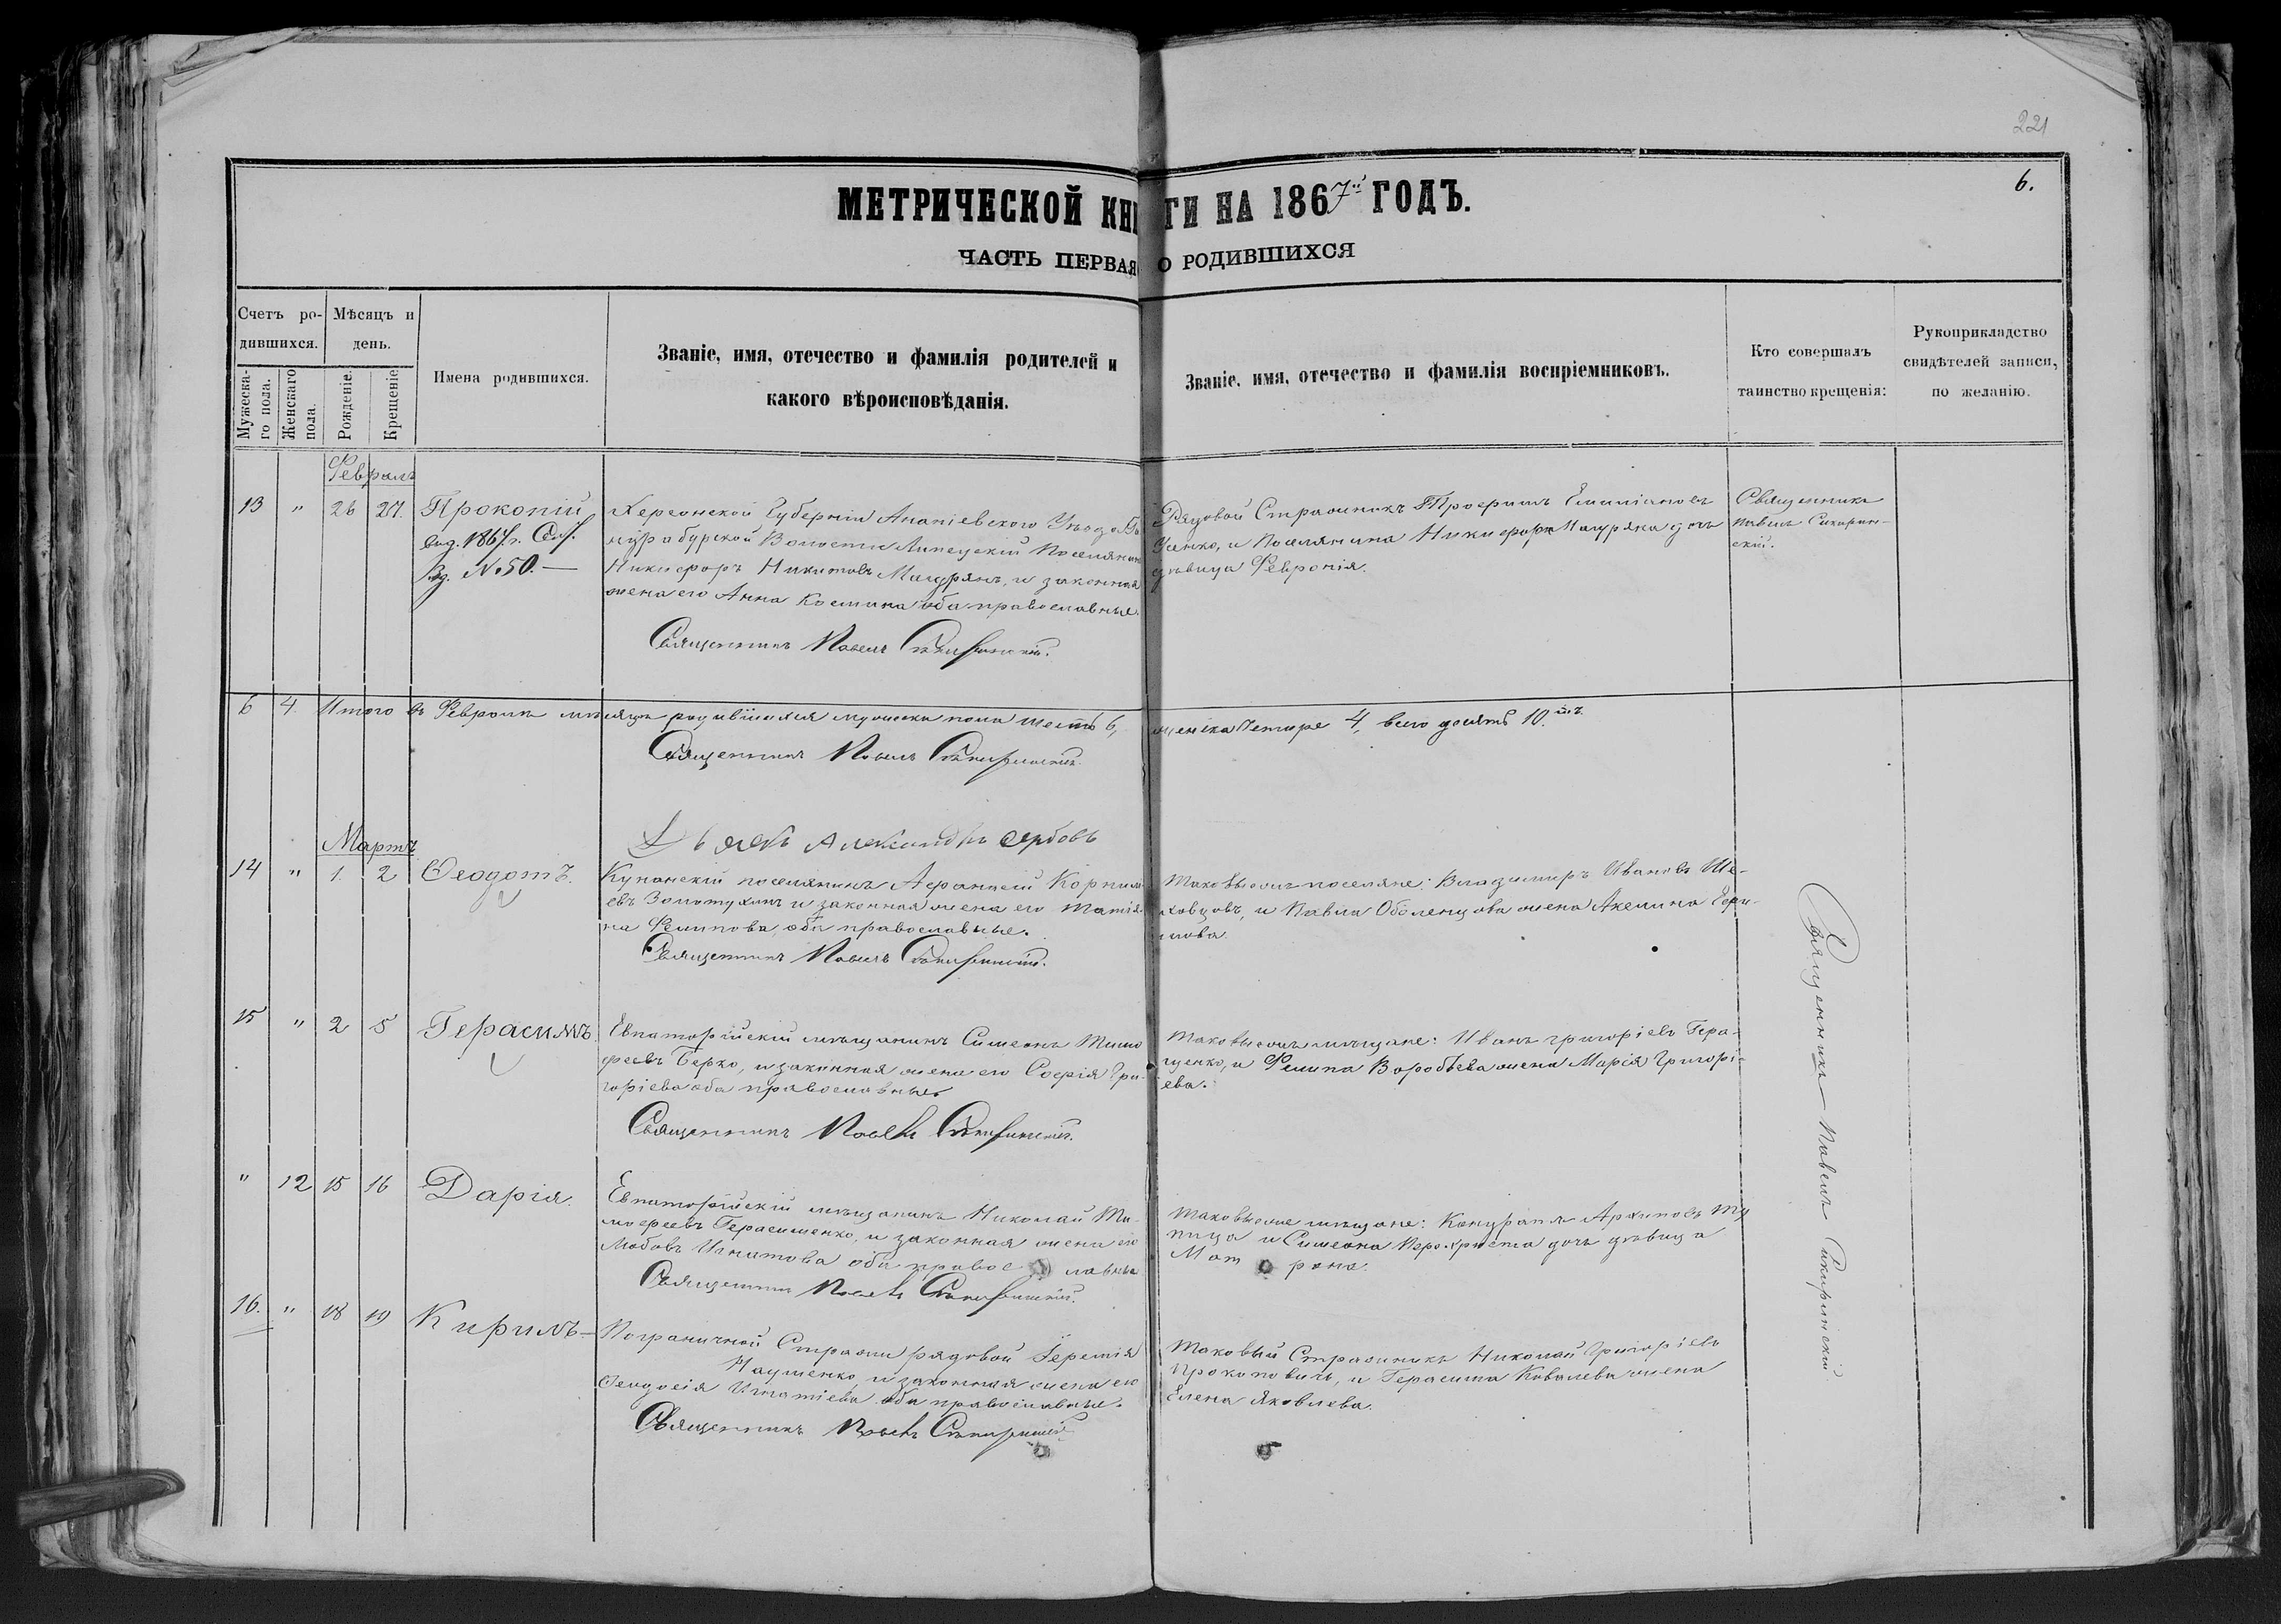 221
6.
МЕТРИЧЕСКОЙ КНИГИ НА 1867й ГОДЪ.
ЧАСТЬ ПЕРВАЯ О РОДИВШИХСЯ
Счетъ ро-
дившихся.
Мужеска-
го пола.
Женскаго
пола.
Мѣсяцъ и
день.
Рожденіе.
Крещеніе
Имена родившихся.
Званіе, имя, отечество и фамилія родителей и
какого вѣроисповѣданія.
Званіе, имя, отечество и фамилія воспріемниковъ.
Кто совершалъ
таинство крещенія:
Рукоприкладство
свидѣтелей записи,
по желанію.
Февраль
13 " 26 27. Прокопій
1867г.
№50.—
Херсонской Губерніи Ананіевскаго Уѣзда
Волости Поселянинъ
Никифоръ Никитовъ и законная
жена его Анна Космина оба православные.
Священникъ Павелъ Сикиринскій.
Рядовой Стражникъ Трофимъ Емиліановъ
Усенко, и Поселянина Никифора дочь
дѣвица Февронія.
Священникъ
Павелъ Сикирин-
скій.
6 4 Итого въ Февралѣ мѣсяцѣ родившихся мужеска пола шесть 6, женска четыре 4, всего десять 10.ть
Священникъ Павелъ Сикиринскій.
Дьякъ Александръ Сербовъ
Мартъ
14 " 1. 2 Ѳеодотъ.
поселянинъ Афанасій Корнил-
евъ Золотухинъ и законная жена его Татія-
на Филипова, оба православные.
Священникъ Павелъ Сикиринскій.
Таковые же поселяне: Владимиръ Ивановъ Ше-
ховцовъ, и Павла Оболенцова жена Акелина
15 " 2 5 Герасимъ
Евпаторійскій мѣщанинъ Симеонъ Тимо
феевъ Берко, и законная жена его Софія Гри-
горіева оба православные.
Священникъ Павелъ Сикиринскій.
Таковые же мѣщане: Иванъ Григоріевъ Гера-
щенко, и Филипа Воробьева жена Марія Григорі-
ева.
" 12 15 16 Дарія.
Евпаторійскій мѣщанинъ Николай Ти-
мофеевъ Герасименко, и законная жена его
Любовь Игнатова оба православные
Священникъ Павелъ Сикиринскій.
Таковые же мѣщане: Кондратъ Архиповъ Ту
пица и Симеона дочь дѣвица
Матрона.
16. " 18 19 Кирилъ—
Пограничной Стражи рядовой Іеремія
Науменко и законная жена его
Ѳеодосія Игнатіева оба православные.
Священникъ Павелъ Сикиринскій
Таковый Стражникъ Николай Григоріевъ
Прокоповичъ, и Герасима Ковалева жена
Елена Яковлева.
Священникъ Павелъ Сикиринскій